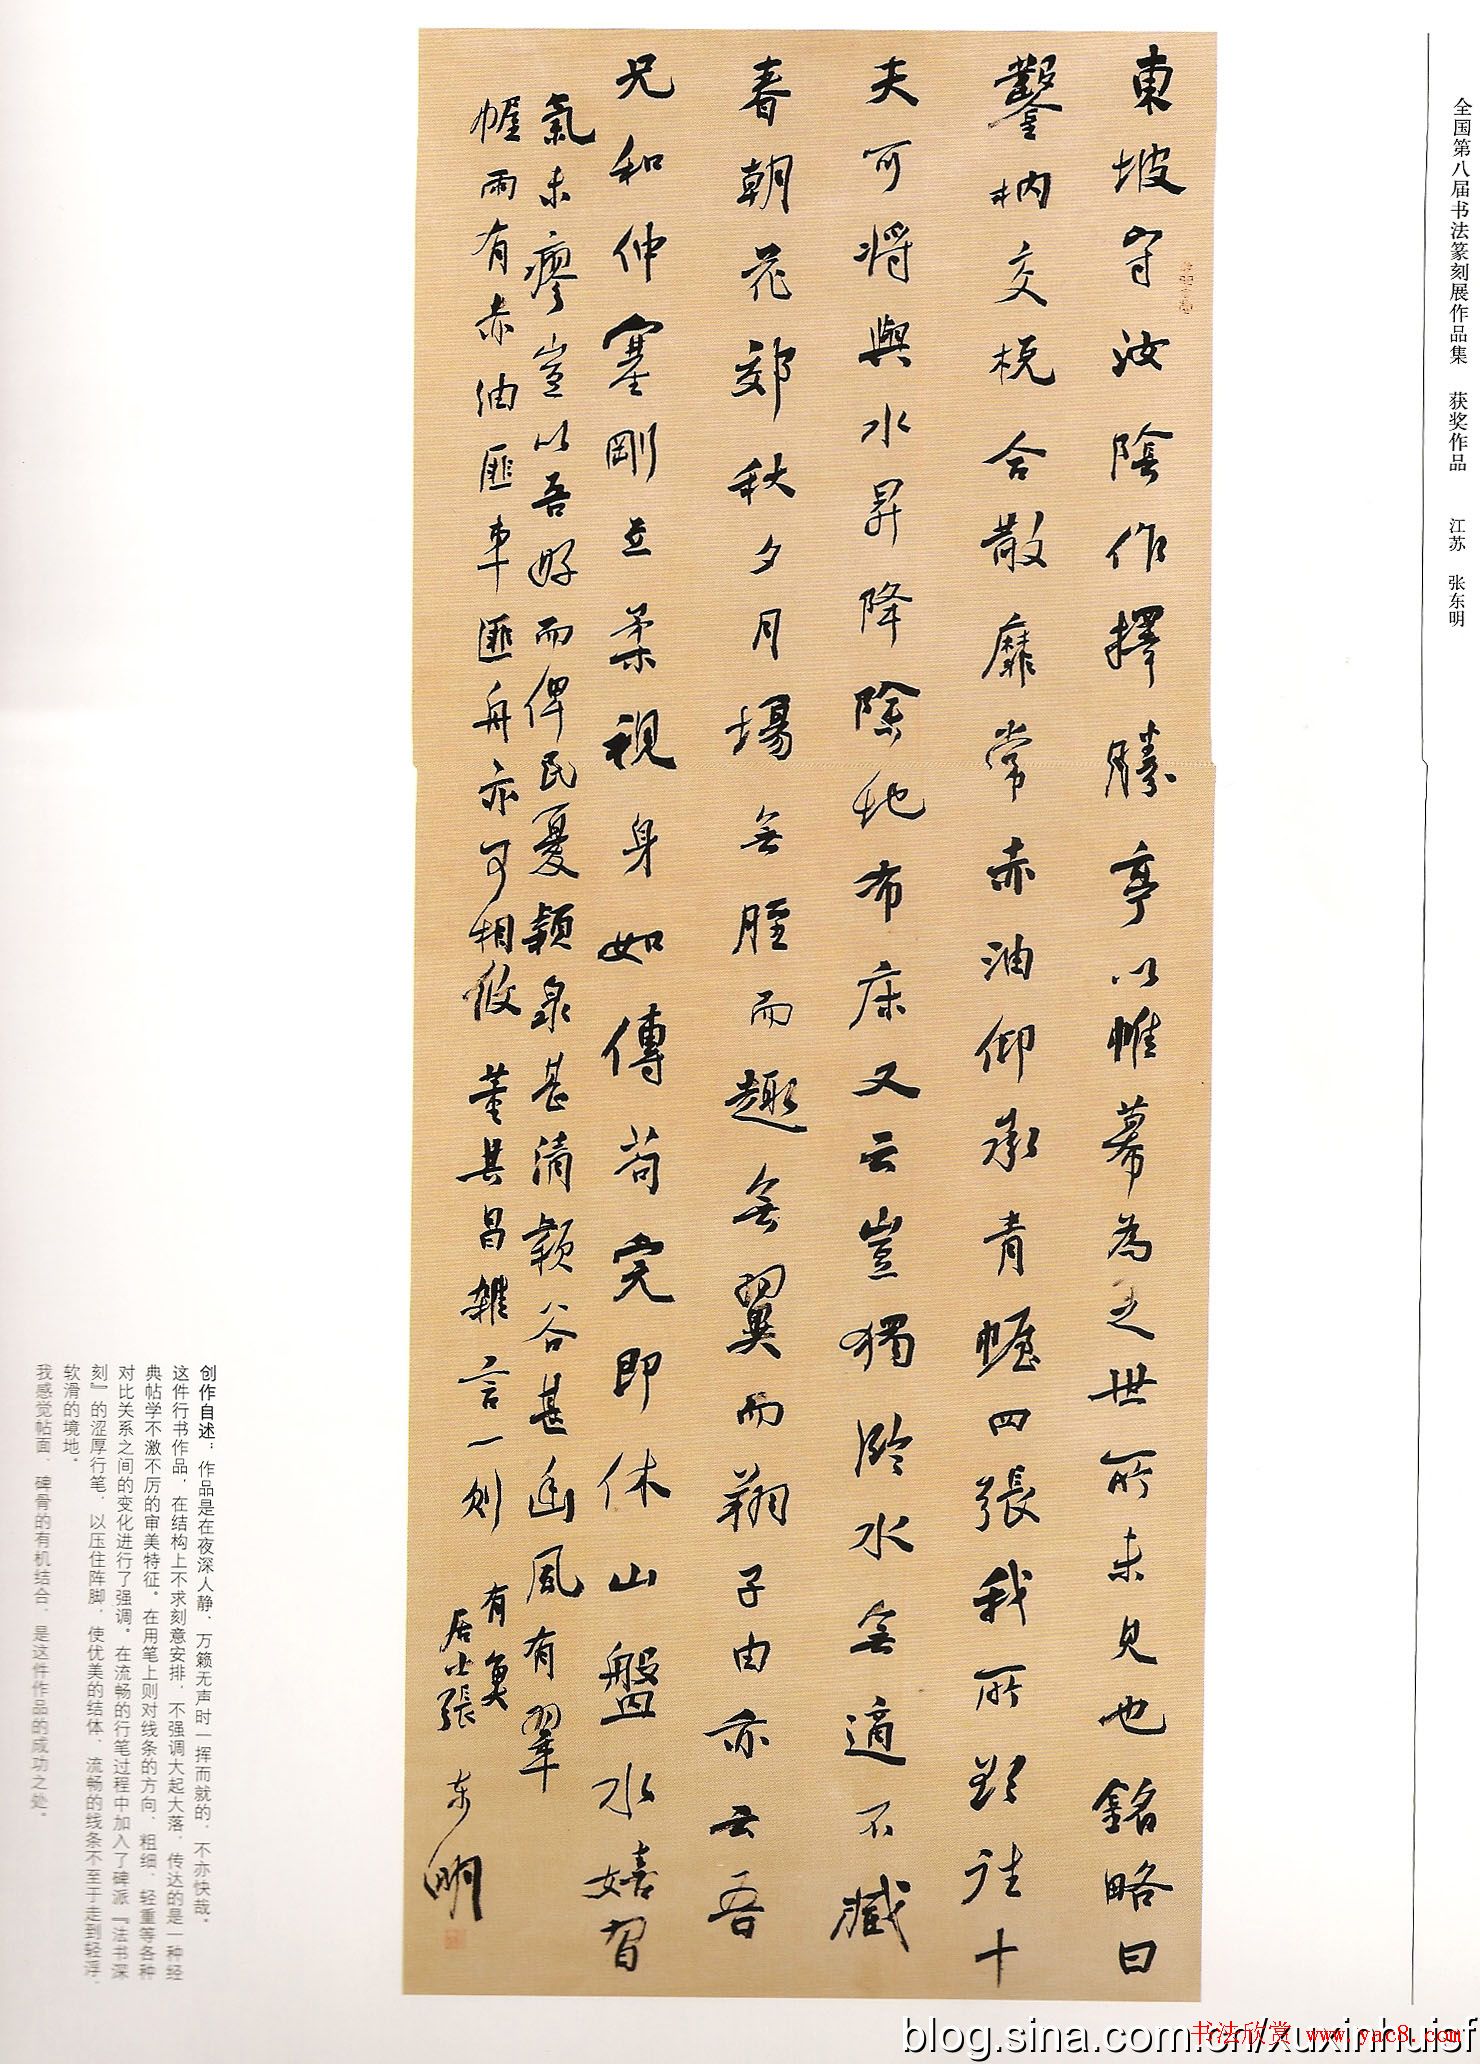 全国第八届书法篆刻展作品集 获奖作品 江苏 张东明
東坡守汝陰作擇勝亭以帷幕為之世所未見也銘略曰
鑿枘交梲合散靡常赤油仰承青幄四張我所欲往十
夫可將與水昇降除地布床又云豈獨臨水無適不臧
春朝花郊秋夕月場無脛而趣無翼而翔子由亦云吾
兄和仲塞剛立柔視身如傳苟完即休山盤水嬉習
氣未瘳豈以吾好而俾民憂穎泉甚清穎谷甚幽風有翠
幄雨有赤油匪車匪舟亦可相攸 董其昌雜言一則 有莫
居士張東明
创作自述：作品是在夜深人静、万籁无声时一挥而就的，不亦快哉。
这件行书作品，在结构上不求刻意安排，不强调大起大落，传达的是一种经
典帖学不激不厉的审美特征。在用笔上则对线条的方向、粗细、轻重等各种
对比关系之间的变化进行了强调。在流畅的行笔过程中加入了碑派『法书深
刻』的涩厚行笔，以压住阵脚，使优美的结体、流畅的线条不至于走到轻浮、
软滑的境地。
我感觉帖面、碑骨的有机结合，是这件作品的成功之处。
blog.sina.com.cn/xuxinhuisf
书法欣赏 www.yac8.com